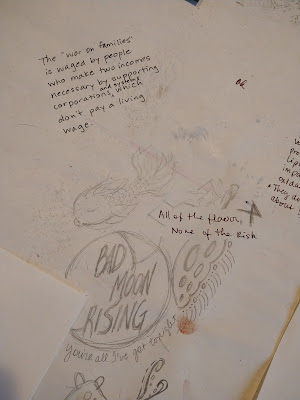 The "war on families"
is waged by people
who make two incomes
necessary by supporting
and systems
corporations, which
don't pay a living
wage.
ok
All of the flavor,
None of the Risk
BAD
MOON
RISING
you're all I've got tonight
about